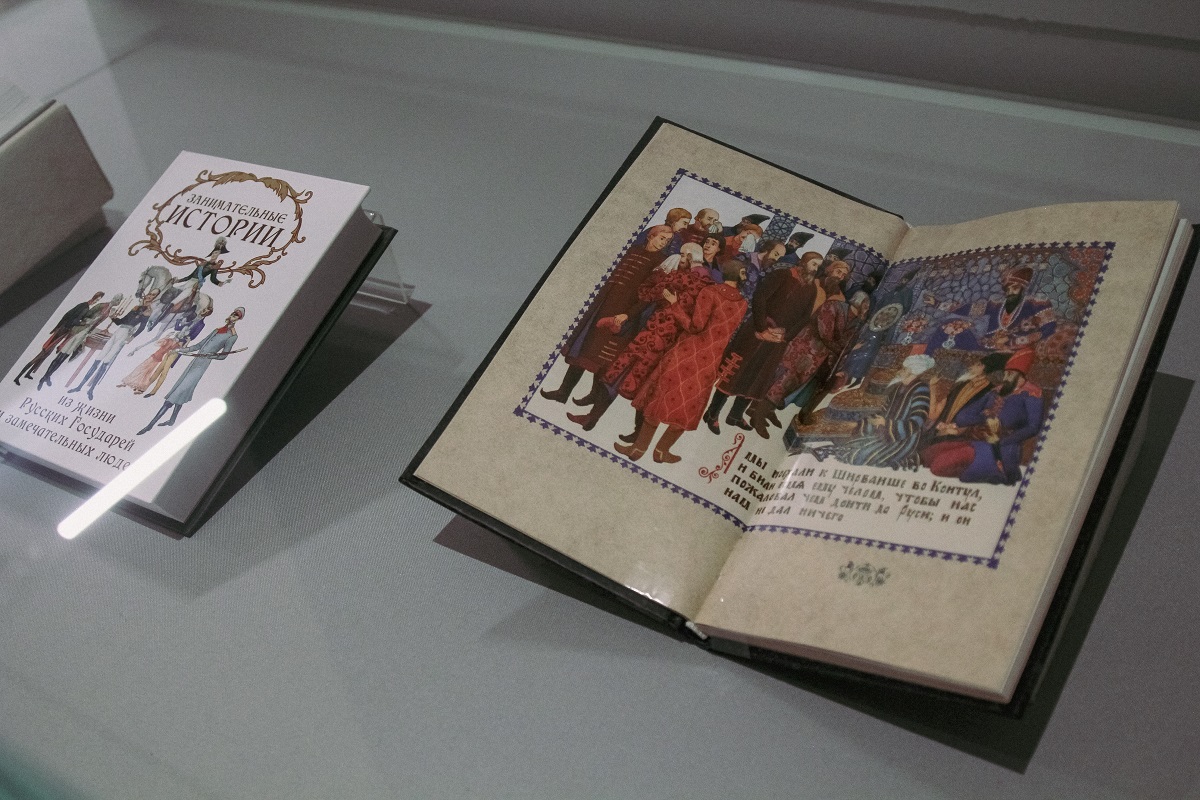 ЗАНИМАТЕЛЬНЫЕ
ИСТОРИИ
из Жизни
Русских Государей
и замечательных люде
А мы поехали к Ширванше во Контул,
и били ему челом, чтобы нас
пожаловал чем дойти до Руси; и он
нам не дал ничего